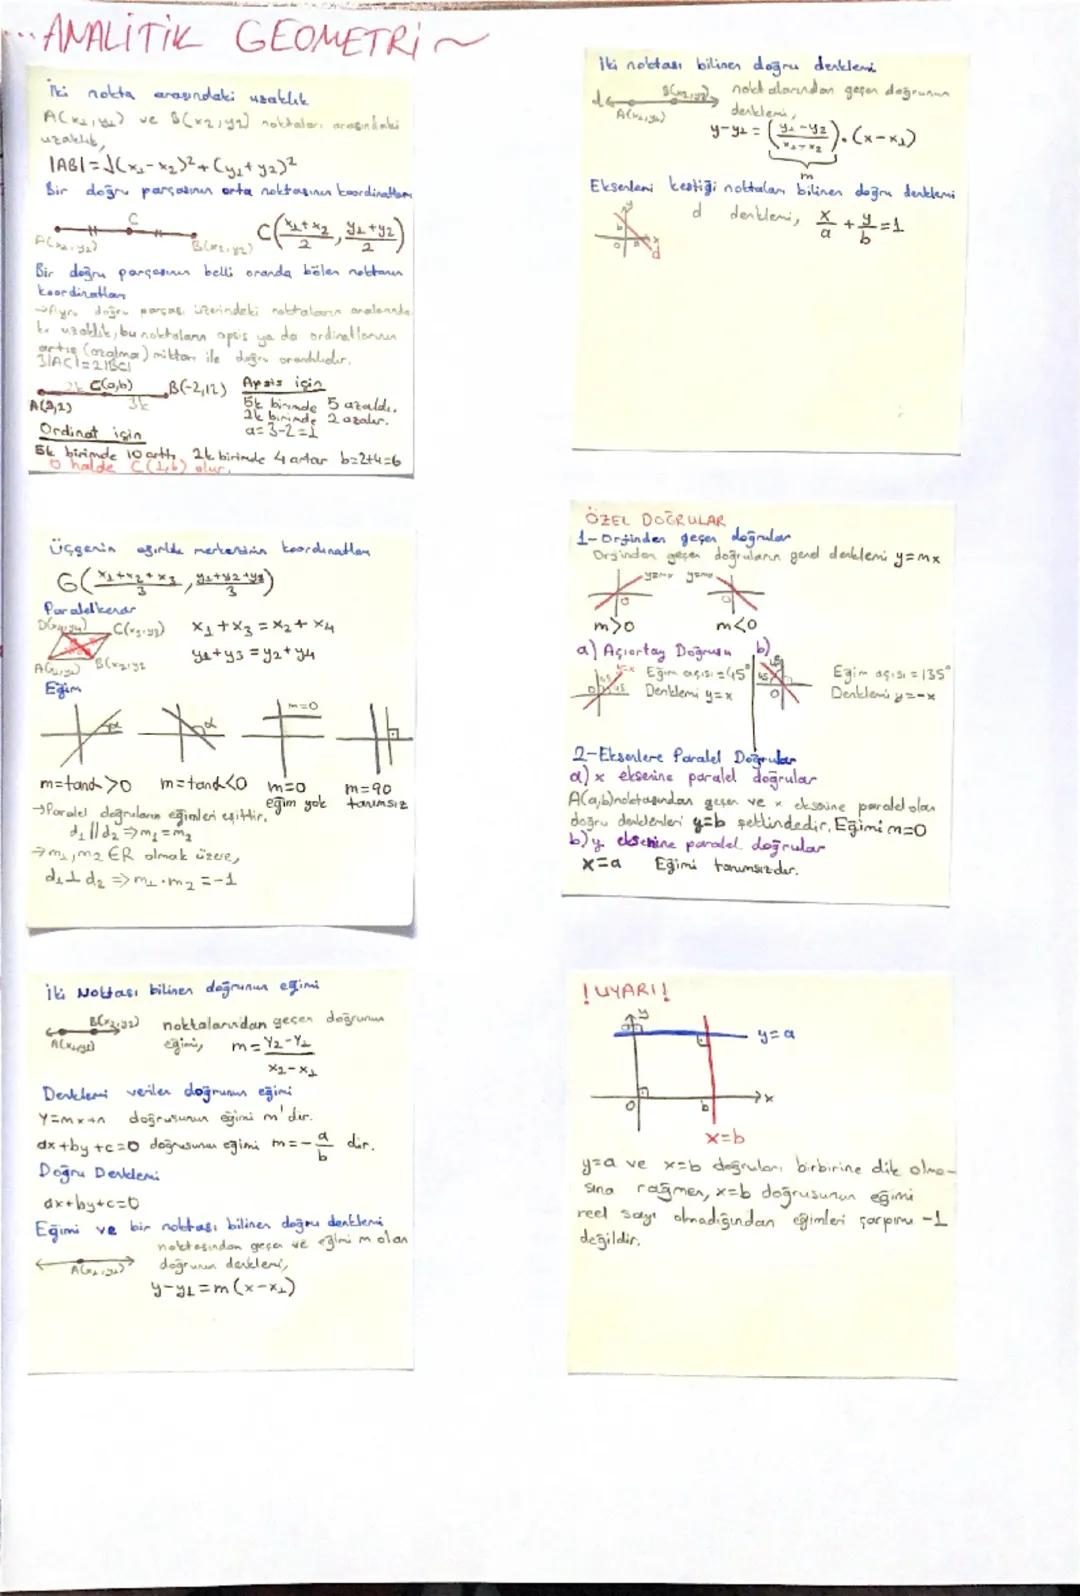 ANALİTİK GEOMETRİ
İki nokta arasındaki uzaklık
A(x₁,y₁) ve B(x₂,y₂) noktaları arasındaki
uzaklık,
|AB|=√(x₁-x₂)²+(y₁+y₂)²
Bir doğru parçasının orta noktasının koordinatları
C
A(x₁,y₁) B(x₂,y₂) C(x₁+x₂/2, y₁+y₂/2)
Bir doğru parçasının belli oranda bölen noktanın
koordinatları
→Aynı doğru parçası üzerindeki noktaların aralarında
ki uzaklık, bu noktaların apsis ya da ordinatlarının
artış (azalma) miktarı ile doğru orantılıdır.
3|AC|=2|BC|
2k C(a,b) B(-2,12) Apsis için
A(3,2) 3k 5k birimde 5 azaldı.
2k birimde 2 azalır.
Ordinat için a=3-2=1
5k birimde 10 arttı, 2k birimde 4 artar b=2+4=6
O halde C(1,6) olur.
Üçgenin ağırlık merkezinin koordinatları
G(x₁+x₂+x₃/3, y₁+y₂+y₃/3)
Paralelkenar
D(x₄,y₄) C(x₃,y₃) x₁+x₃=x₂+x₄
A(x₁,y₁) B(x₂,y₂ y₁+y₃=y₂+y₄
Eğim
α α m=0
m=tanα>0 m=tanα<0 m=0 m=90
eğim yok tanımsız
→Paralel doğruların eğimleri eşittir.
d₁//d₂⇒m₁=m₂
→m₁,m₂∈R olmak üzere,
d₁⊥d₂⇒m₁.m₂=-1
İki Noktası bilinen doğrunun eğimi
B(x₂,y₂) noktalarından geçen doğrunun
A(x₁,y₁) eğimi, m=Y₂-Y₁/x₂-x₁
Denklemi verilen doğrunun eğimi
Y=mx+n doğrusunun eğimi m'dir.
ax+by+c=0 doğrusunun eğimi m=-a/b dir.
Doğru Denklemi
ax+by+c=0
Eğimi ve bir noktası bilinen doğru denklemi
noktasından geçen ve eğimi m olan
A(x₁,y₁) doğrunun denklemi,
y-y₁=m(x-x₁)
İki noktası bilinen doğru denklemi
d B(x₂,y₂) noktalarından geçen doğrunun
A(x₁,y₁) denklemi,
y-y₁=(y₁-y₂/x₁-x₂).(x-x₁)
m
Eksenleri kestiği noktaları bilinen doğru denklemi
d denklemi, x/a+y/b=1
y b 0 a x d
ÖZEL DOĞRULAR
1-Orjinden geçen doğrular
Orjinden geçen doğruların genel denklemi y=mx
y=mx y=mx
0 0
m>0 m<0
a) Açıortay Doğrusu b)
y=x Eğim açısı=45° Eğim açısı=135°
45 45 Denklemi y=x 45 45 Denklemi y=-x
0 0
2-Eksenlere Paralel Doğrular
a) x eksenine paralel doğrular
A(a,b)noktasından geçen ve x eksenine paralel olan
doğru denklemleri y=b şeklindedir. Eğimi m=0
b) y eksenine paralel doğrular
x=a Eğimi tanımsızdır.
! UYARI!
y
a y=a
0 b x
x=b
y=a ve x=b doğruları birbirine dik olma-
sına rağmen, x=b doğrusunun eğimi
reel sayı olmadığından eğimleri çarpımı -1
değildir.